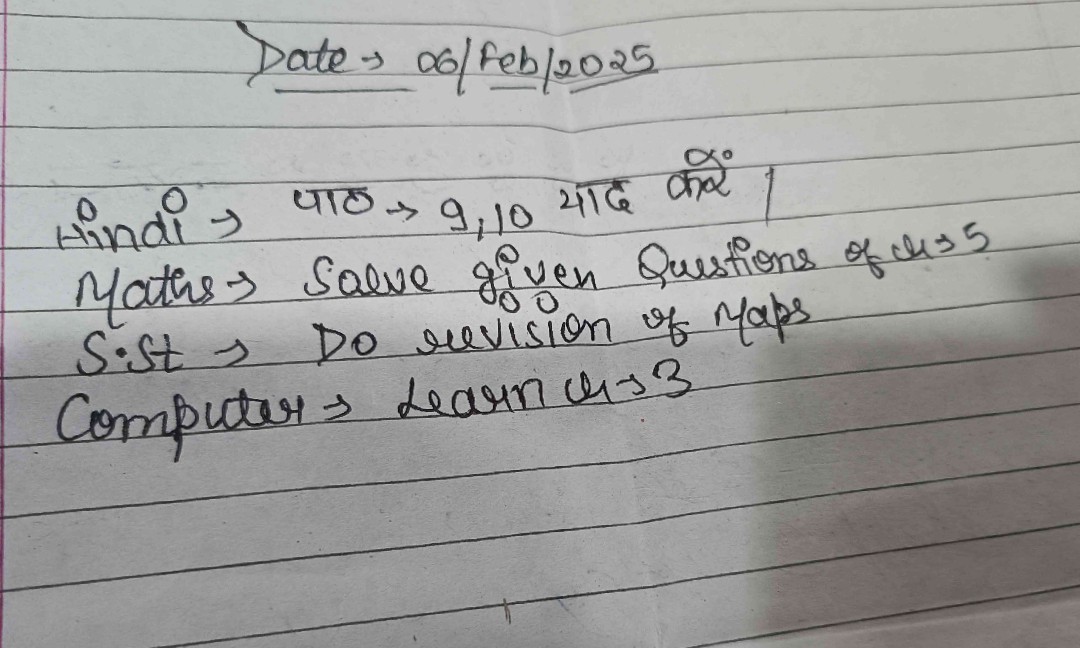 Date → 06/Feb/2025
Hindi → पाठ → 9,10 याद करें |
Maths → Solve given Questions of ch → 5
S.St → Do revision of Maps
Computer → Learn ch → 3